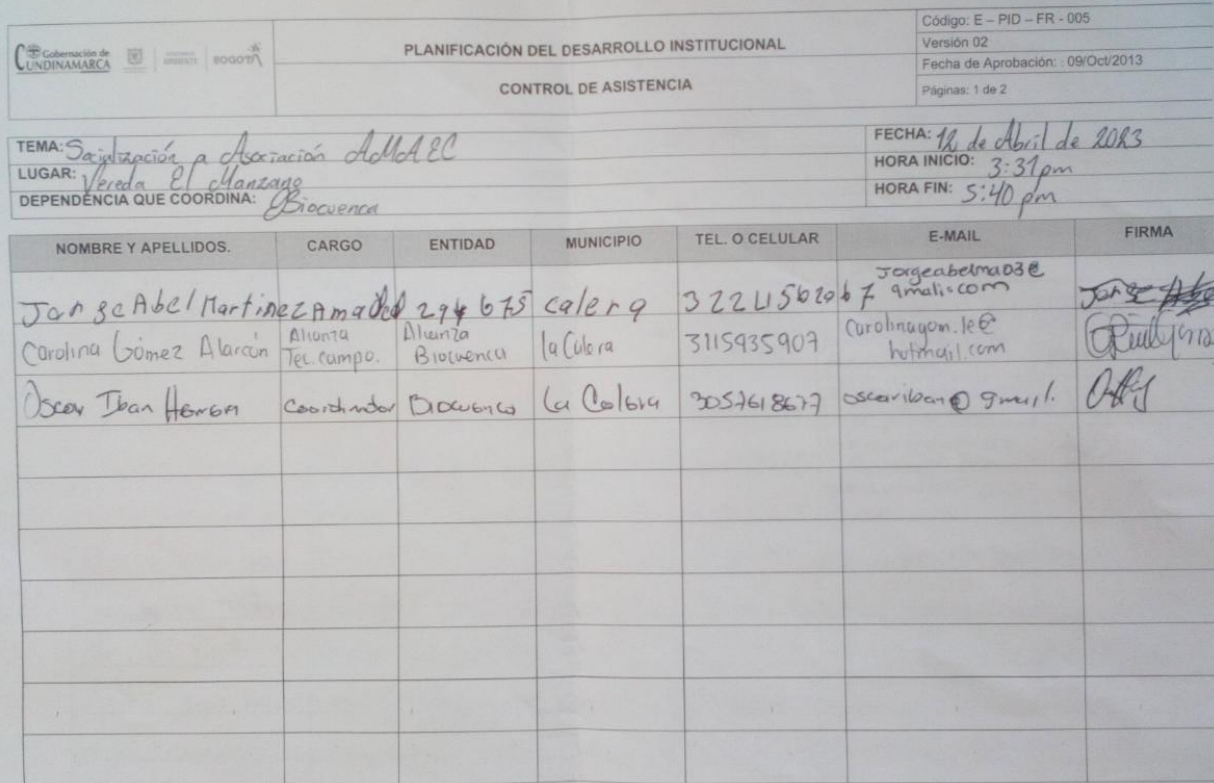 Gobernación de
CUNDINAMARCA
BOGOTÁ
PLANIFICACIÓN DEL DESARROLLO INSTITUCIONAL
CONTROL DE ASISTENCIA
Código: E – PID – FR - 005
Versión 02
Fecha de Aprobación: : 09/Oct/2013
Páginas: 1 de 2
TEMA: Socialización a Asociación AMAEC
LUGAR: Vereda El Manzano
DEPENDENCIA QUE COORDINA: Biocuenca
FECHA: 12 de Abril de 2023
HORA INICIO: 3:31pm
HORA FIN: 5:40 pm
NOMBRE Y APELLIDOS. CARGO ENTIDAD MUNICIPIO TEL. O CELULAR E-MAIL FIRMA
Jorge Abel Martinez Amado 294675 calera 3224156206 7 Jorgeabelma03@
gmali.com Jorge
Carolina Gómez Alarcón Alianza Alianza la Calera 3115935907 Carolinagom.le@
Tec. campo. Biocuenca hotmail.com
Oscar Iban Coordinador Biocuenca La Calera 3057618677 oscariban@gmail.